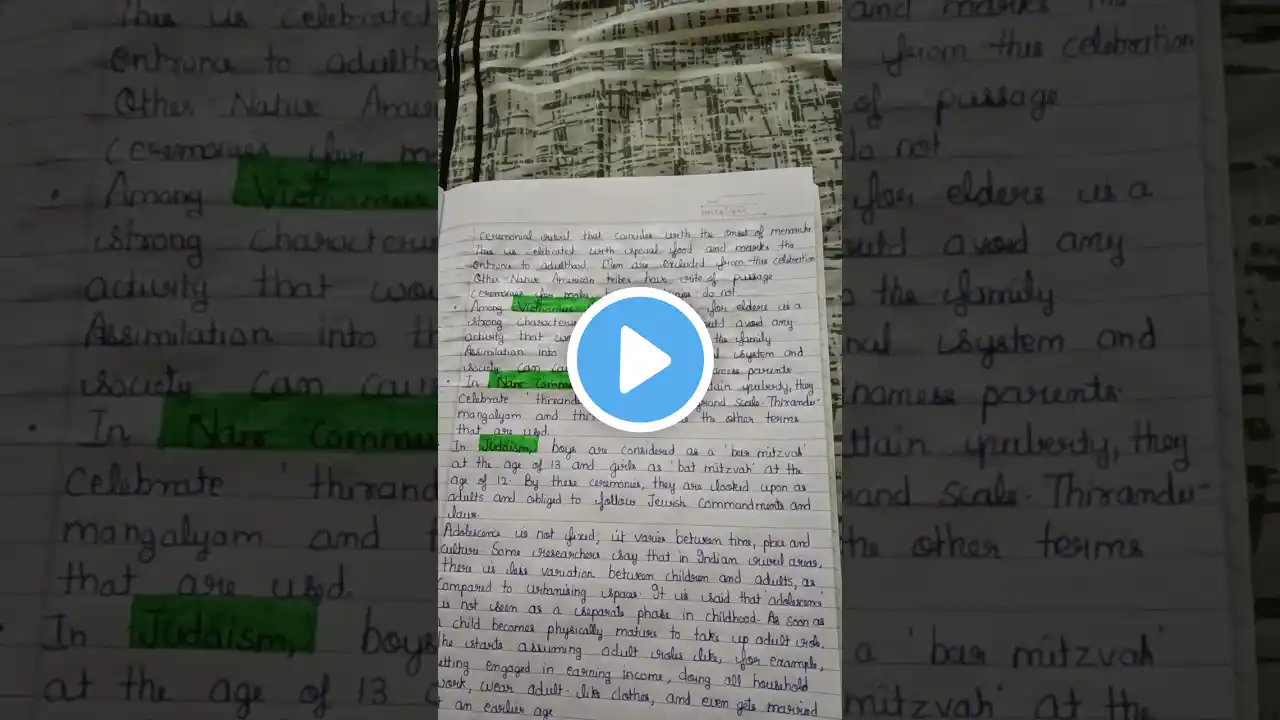 Ceremonial ritual that coincides with the onset of menarche
This is celebrated with special food and marks the
entrance to adulthood. Men are excluded from this celebration
Other Native American tribes have rite of passage
Ceremonies for males do not
Among Vietnamese for elders is a
strong avoid any
activity that the family
Assimilation into system and
society can parents
In Nair puberty, they
Celebrate grand scale. Thirandu-
mangalyam and the other terms
that are used.
In Judaism, boys are considered as a 'bar mitzvah'
at the age of 13 and girls as 'bat mitzvah' at the
age of 12. By these ceremonies, they are looked upon as
adults and obliged to follow Jewish Commandments and
laws.
Adolescence is not fixed, it varies between time, place and
culture. Some researchers say that in Indian rural areas,
there is less variation between children and adults, as
compared to urbanising space. It is said that 'adolescence'
is not seen as a separate phase in childhood. As soon as
a child becomes physically mature to take up adult role,
he starts assuming adult roles like, for example,
getting engaged in earning income, doing all household
work, wear adult-like clothes, and even gets married
an earlier age